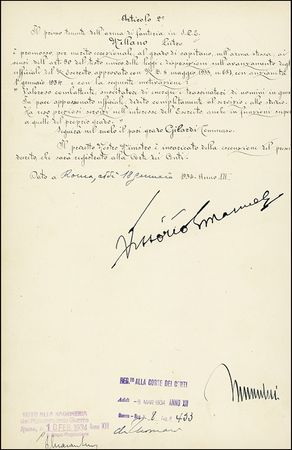 Articolo 2º
Il primo tenente dell'arma di fanteria in S.P.E.
Millano Pietro
è promosso, per merito eccezionale, al grado di capitano, nell'arma stessa, ai
sensi dell'art. 80 del testo unico delle leggi e disposizioni sull'avanzamento degli
ufficiali del R. Esercito approvato con R.D. 8 maggio 1933, n. , con anzianità
1º gennaio 1934 e con la seguente motivazione:
" Valoroso combattente, suscitatore di energie, trascinatore di uomini in guerra.
In pace appassionato ufficiale, dedito completamente al servizio e allo studio.
Ha reso preziosi servizi nell'interesse dell'Esercito anche in funzioni superiori
a quelle del proprio grado."
Seguirà nel ruolo il pari grado Gilardi Tommaso.
Il predetto Nostro Ministro è incaricato della esecuzione del presente
decreto, che sarà registrato alla Corte dei Conti.
Dato a Roma, addì 18 gennaio 1934 Anno XII
Vittorio Emanuele
REG.TO ALLA CORTE DEI CONTI
Addì 8 MAR 1934 ANNO XII
Guerra - Reg. 8 Fog. 433
Mussolini
VISTO ALLA RAGIONERIA
Roma, 18 FEB. 1934 Anno XII